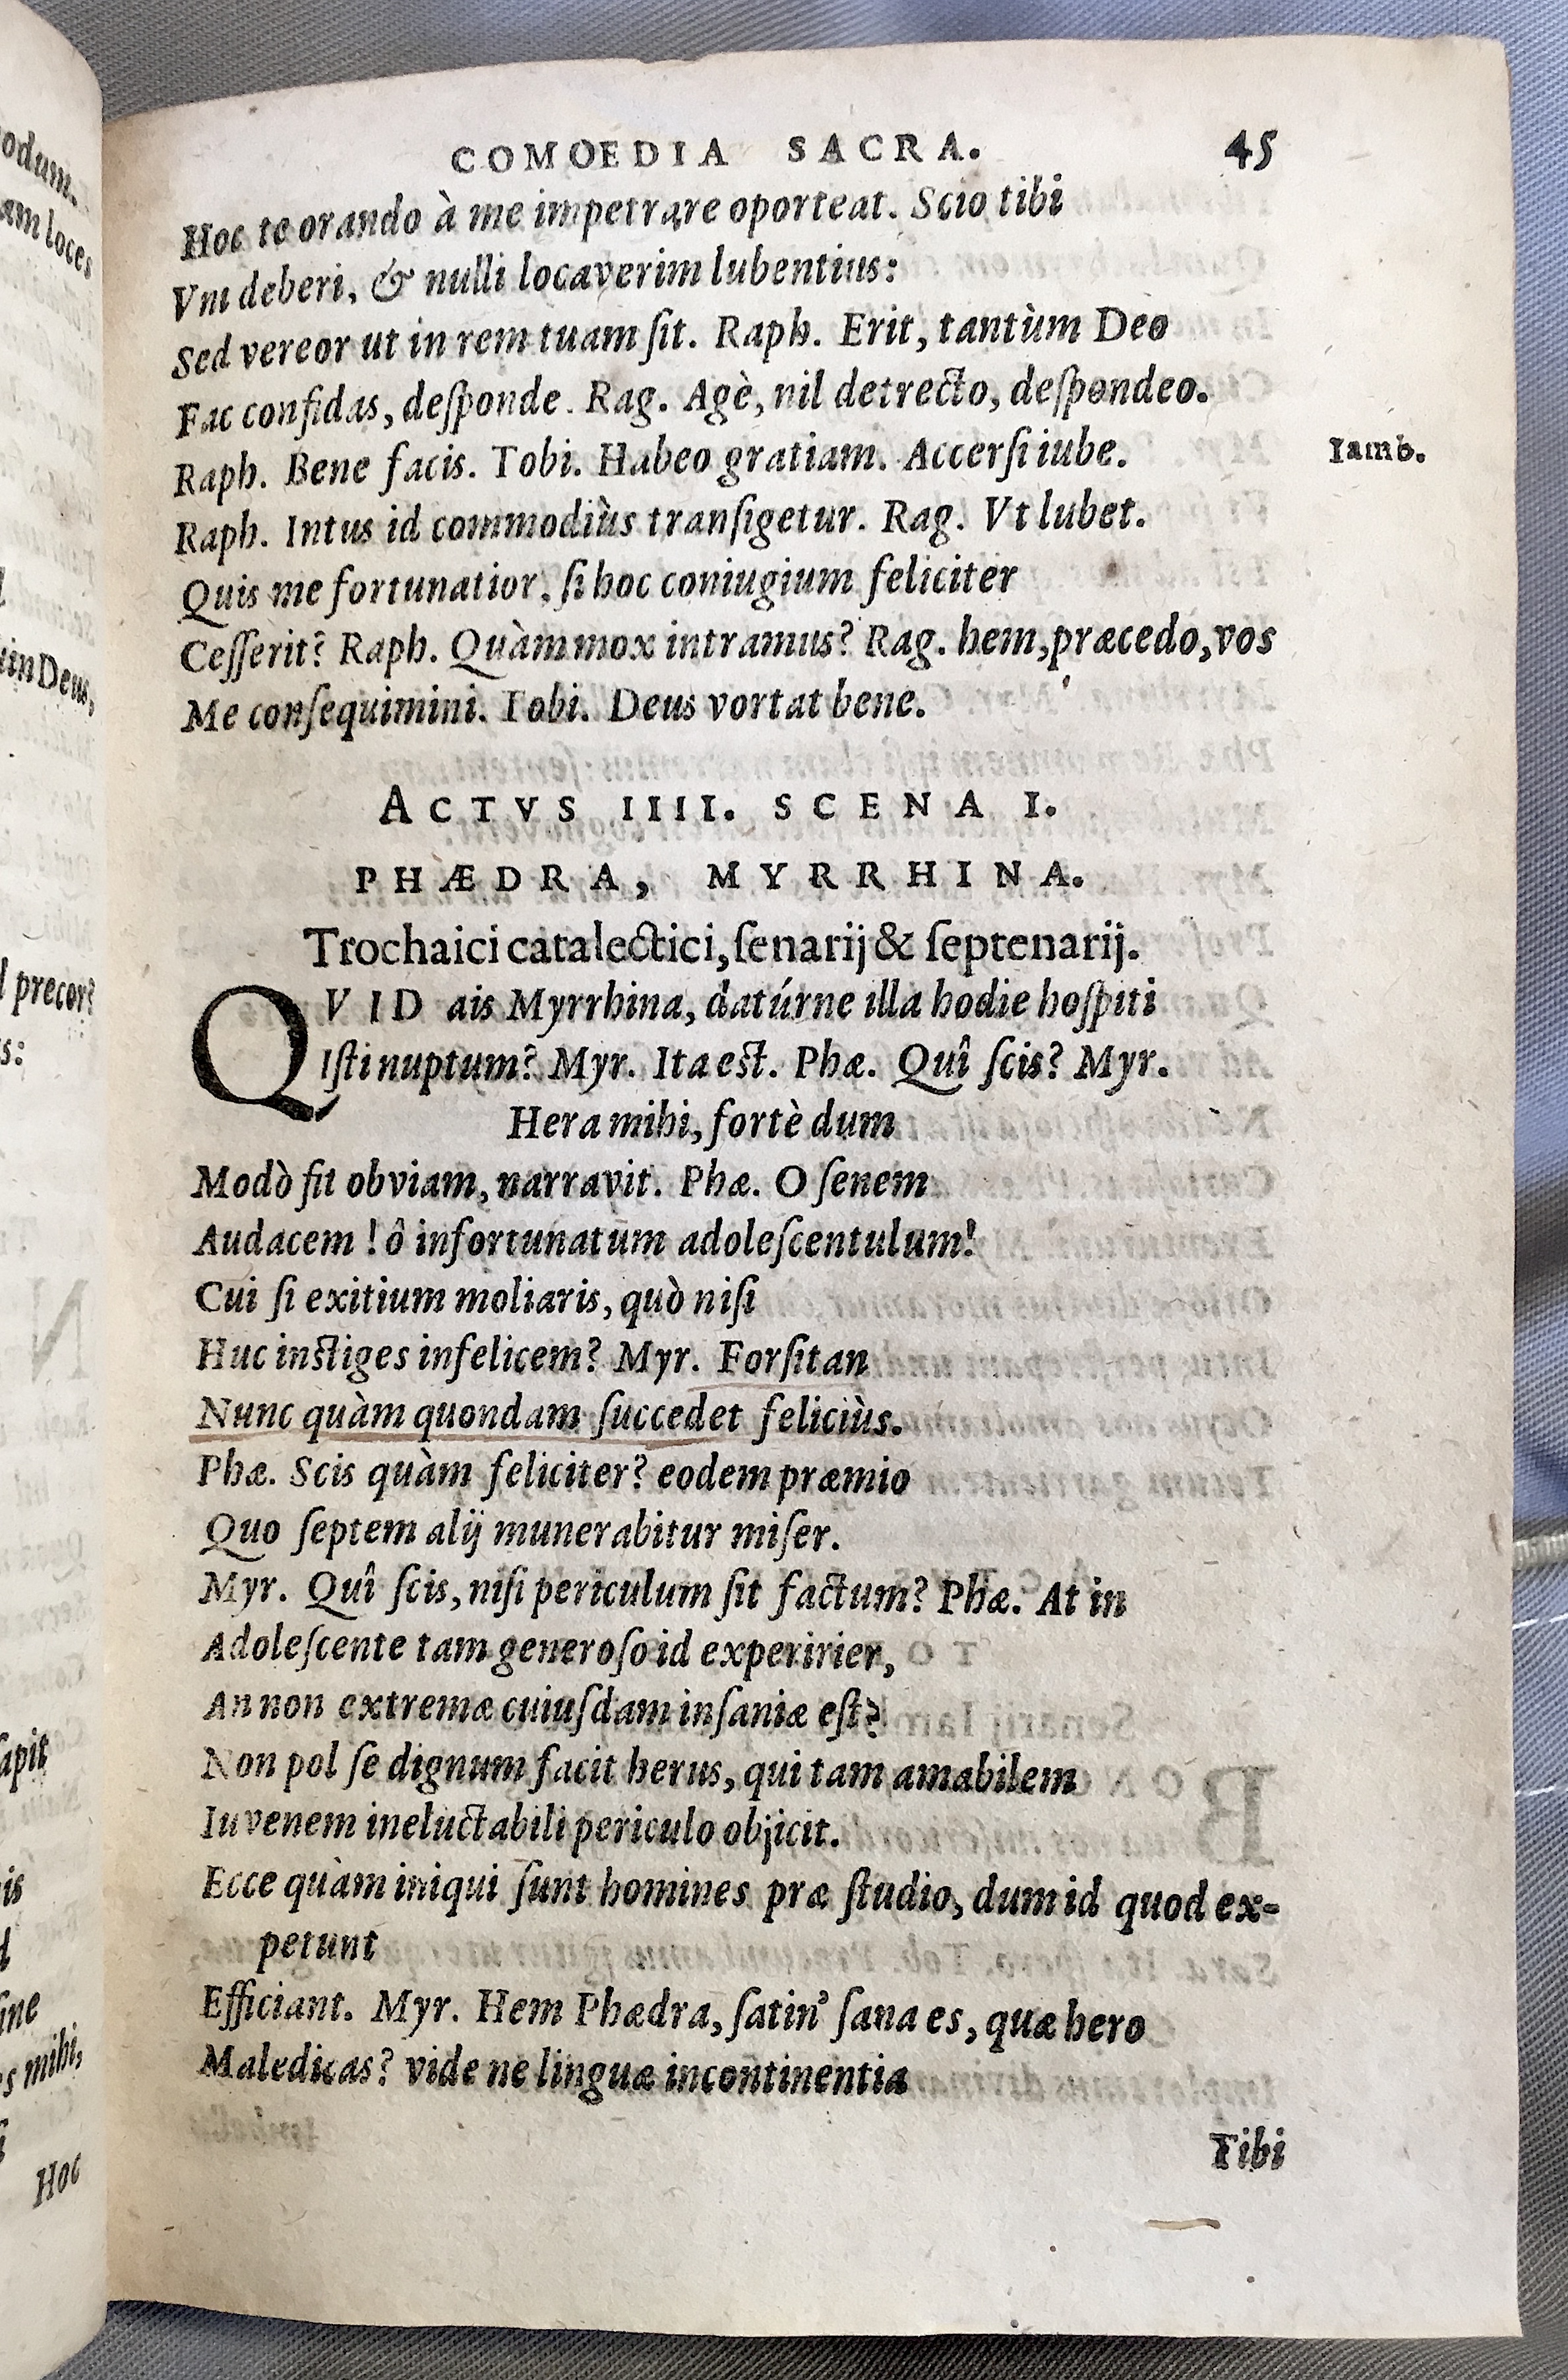 COMOEDIA SACRA. 45
Hoc te orando à me impetrare oporteat. Scio tibi
Vni deberi, & nulli locaverim lubentius:
Sed vereor ut in rem tuam ſit. Raph. Erit, tantùm Deo
Fac confidas, deſponde. Rag. Agè, nil detrecto, deſpondeo.
Raph. Bene facis. Tobi. Habeo gratiam. Accerſi iube. Iamb.
Raph. Intus id commodiùs tranſigetur. Rag. Vt lubet.
Quis me fortunatior, ſi hoc coniugium feliciter
Ceſſerit? Raph. Quàm mox intramus? Rag. hem, præcedo, vos
Me conſequimini. Tobi. Deus vortat bene.
ACTVS IIII. SCENA I.
PHÆDRA, MYRRHINA.
Trochaici catalectici, ſenarij & ſeptenarij.
QVID ais Myrrhina, datúrne illa hodie hoſpiti
Iſti nuptum? Myr. Ita eſt. Phæ. Quî ſcis? Myr.
Hera mihi, fortè dum
Modò fit obviam, narravit. Phæ. O ſenem
Audacem! ô infortunatum adoleſcentulum!
Cui ſi exitium moliaris, quò niſi
Huc inſtiges infelicem? Myr. Forſitan
Nunc quàm quondam ſuccedet feliciùs.
Phæ. Scis quàm feliciter? eodem præmio
Quo ſeptem alij munerabitur miſer.
Myr. Quî ſcis, niſi periculum ſit factum? Phæ. At in
Adoleſcente tam generoſo id experirier,
An non extremæ cuiuſdam inſaniæ eſt?
Non pol ſe dignum facit herus, qui tam amabilem
Iuvenem ineluctabili periculo objicit.
Ecce quàm iniqui ſunt homines præ ſtudio, dum id quod ex-
petunt
Efficiant. Myr. Hem Phædra, ſatin' ſana es, quæ hero
Maledicas? vide ne linguæ incontinentia
Tibi
odum.
am loces
uin Deus,
precor?
apit
mihi,
Hoc